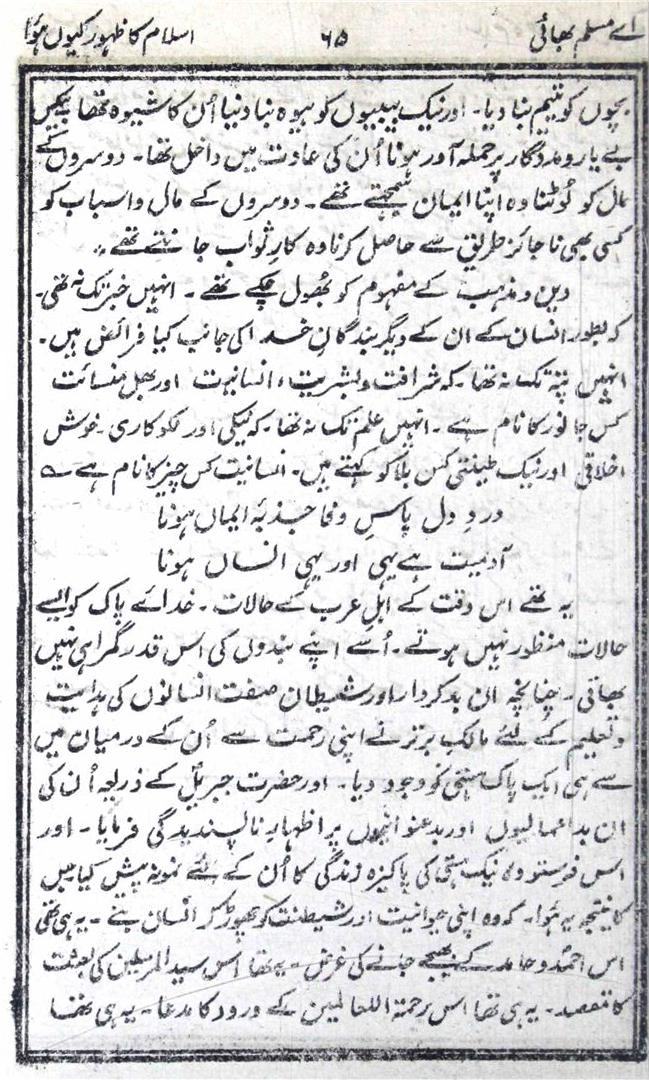 اے مسلم بھائی ۶۵ اسلام کا ظہور کیوں ہؤا
بچوں کو یتیم بنا دیا۔ اور نیک بیبیوں کو بیوہ بنا دینا اُن کا شیوہ تھا۔ بیکس
بے یار و مددگار پر حملہ آور ہونا اُن کی عادت میں داخل تھا۔ دوسروں کے
مال کو لُوٹنا وہ اپنا ایمان سمجھتے تھے۔ دوسروں کے مال و اسباب کو
کسی بھی ناجائز طریق سے حاصل کرنا وہ کارِ ثواب جانتے تھے۔
دین و مذہب کے مفہوم کو بھُول چکے تھے۔ انہیں خبر تک نہ تھی۔
کہ بطور انسان کے ان کے دیگر بندگانِ خدا کی جانب کیا فرائض ہیں۔
انہیں پتہ تک نہ تھا۔ کہ شرافت و بشریت، انسانیت اور بھل منسائت
کس جانور کا نام ہے۔ انہیں علم تک نہ تھا۔ کہ نیکی اور نکوکاری۔ خوش
اخلاقی اور نیک طینتی کس بلا کو کہتے ہیں۔ انسانیت کس چیز کا نام ہے ؎
دردِ دل پاسِ وفا جذبۂ ایماں ہونا
آدمیت ہے یہی اور یہی انساں ہونا
یہ تھے اس وقت کے اہلِ عرب کے حالات۔ خدائے پاک کو ایسے
حالات منظور نہیں ہوتے۔ اُسے اپنے بندوں کی اس قدر گمراہی نہیں
بھاتی۔ چنانچہ ان بدکردار اور شیطان صفت انسانوں کی ہدایت
و تعلیم کے لئے مالکِ برتر نے اپنی رحمت سے اُن کے درمیان میں
سے ہی ایک پاک ہستی کو وجود دیا۔ اور حضرت جبریل کے ذریعہ اُن کی
ان بداعمالیوں اور بدعنوانیوں پر اظہارِ ناپسندیدگی فرمایا۔ اور
اس فرستودہ نیک ہستی کی پاکیزہ زندگی کا اُن کے لئے نمونہ پیش کیا جس
کا نتیجہ یہ ہؤا۔ کہ وہ اپنی حیوانیت اور شیطنت کو چھوڑ کر انسان بنے۔ یہ ہی تھی
اس احمدؐ و حامد کے بھیجے جانے کی غرض۔ یہ تھا اس سید المرسلین کی بعثت
کا مقصد۔ یہ ہی تھا اس رحمۃ اللعالمین کے ورود کا مدعا۔ یہ ہی تھا